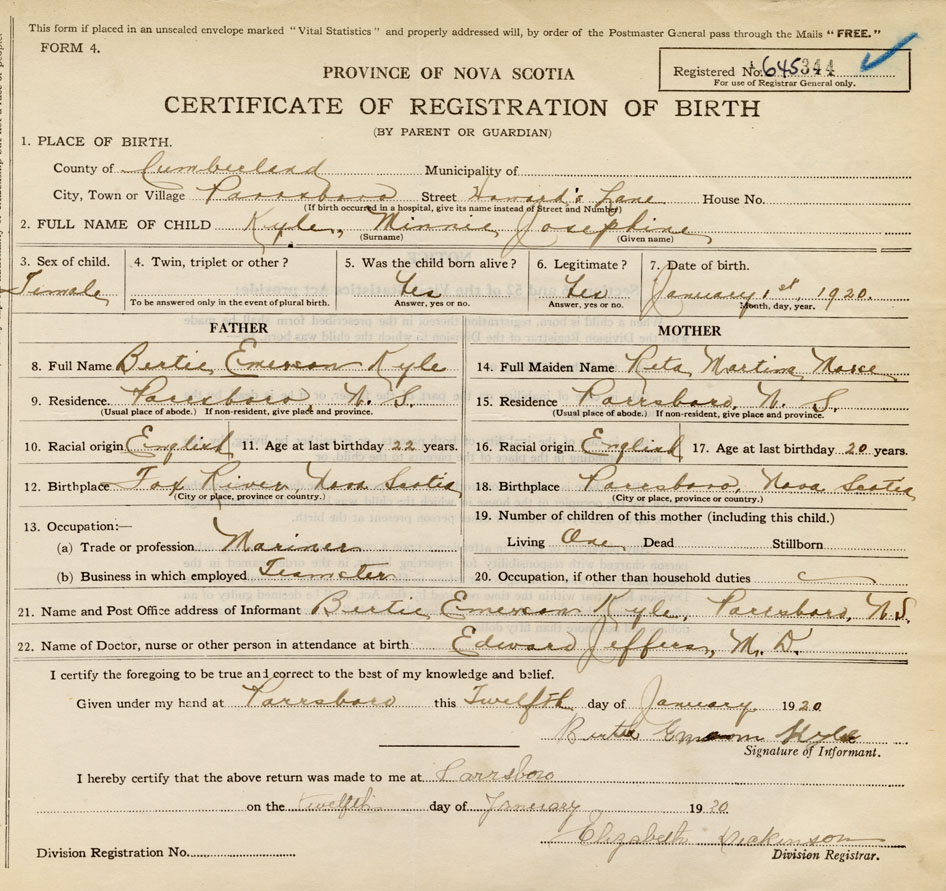 This form if placed in an unsealed envelope marked "Vital Statistics" and properly addressed will, by order of the Postmaster General pass through the Mails "FREE."
FORM 4.
Registered No. 645344
For use of Registrar General only.
PROVINCE OF NOVA SCOTIA
CERTIFICATE OF REGISTRATION OF BIRTH
(BY PARENT OR GUARDIAN)
1. PLACE OF BIRTH.
County of Cumberland Municipality of
City, Town or Village Parrsboro Street Lane House No.
(If birth occurred in a hospital, give its name instead of Street and Number)
2. FULL NAME OF CHILD Kyle, Minnie Josephine
(Surname) (Given name)
3. Sex of child. 4. Twin, triplet or other? 5. Was the child born alive? 6. Legitimate? 7. Date of birth.
Female Yes Yes January 1st, 1920.
To be answered only in the event of plural birth. Answer, yes or no. Answer, yes or no. Month, day, year.
FATHER MOTHER
8. Full Name Bertie Emerson Kyle 14. Full Maiden Name Reta
9. Residence. Parrsboro, N. S. 15. Residence Parrsboro, N. S.
(Usual place of abode.) If non-resident, give place and province. (Usual place of abode.) If non-resident, give place and province.
10. Racial origin English 11. Age at last birthday 22 years. 16. Racial origin English 17. Age at last birthday 20 years.
12. Birthplace Fox River Nova Scotia 18. Birthplace Parrsboro, Nova Scotia
(City or place, province or country.) (City or place, province or country.)
13. Occupation:— 19. Number of children of this mother (including this child.)
(a) Trade or profession Mariner Living One Dead Stillborn
(b) Business in which employed Teamster 20. Occupation, if other than household duties
21. Name and Post Office address of Informant Bertie Emerson Kyle, Parrsboro, N.S.
22. Name of Doctor, nurse or other person in attendance at birth Edward Jeffers, M. D.
I certify the foregoing to be true and correct to the best of my knowledge and belief.
Given under my hand at Parrsboro this Twelfth day of January 1920
Emerson Kyle
Signature of Informant.
I hereby certify that the above return was made to me at Parrsboro
on the twelfth day of January 1920
Elizabeth Dickinson
Division Registration No. Division Registrar.